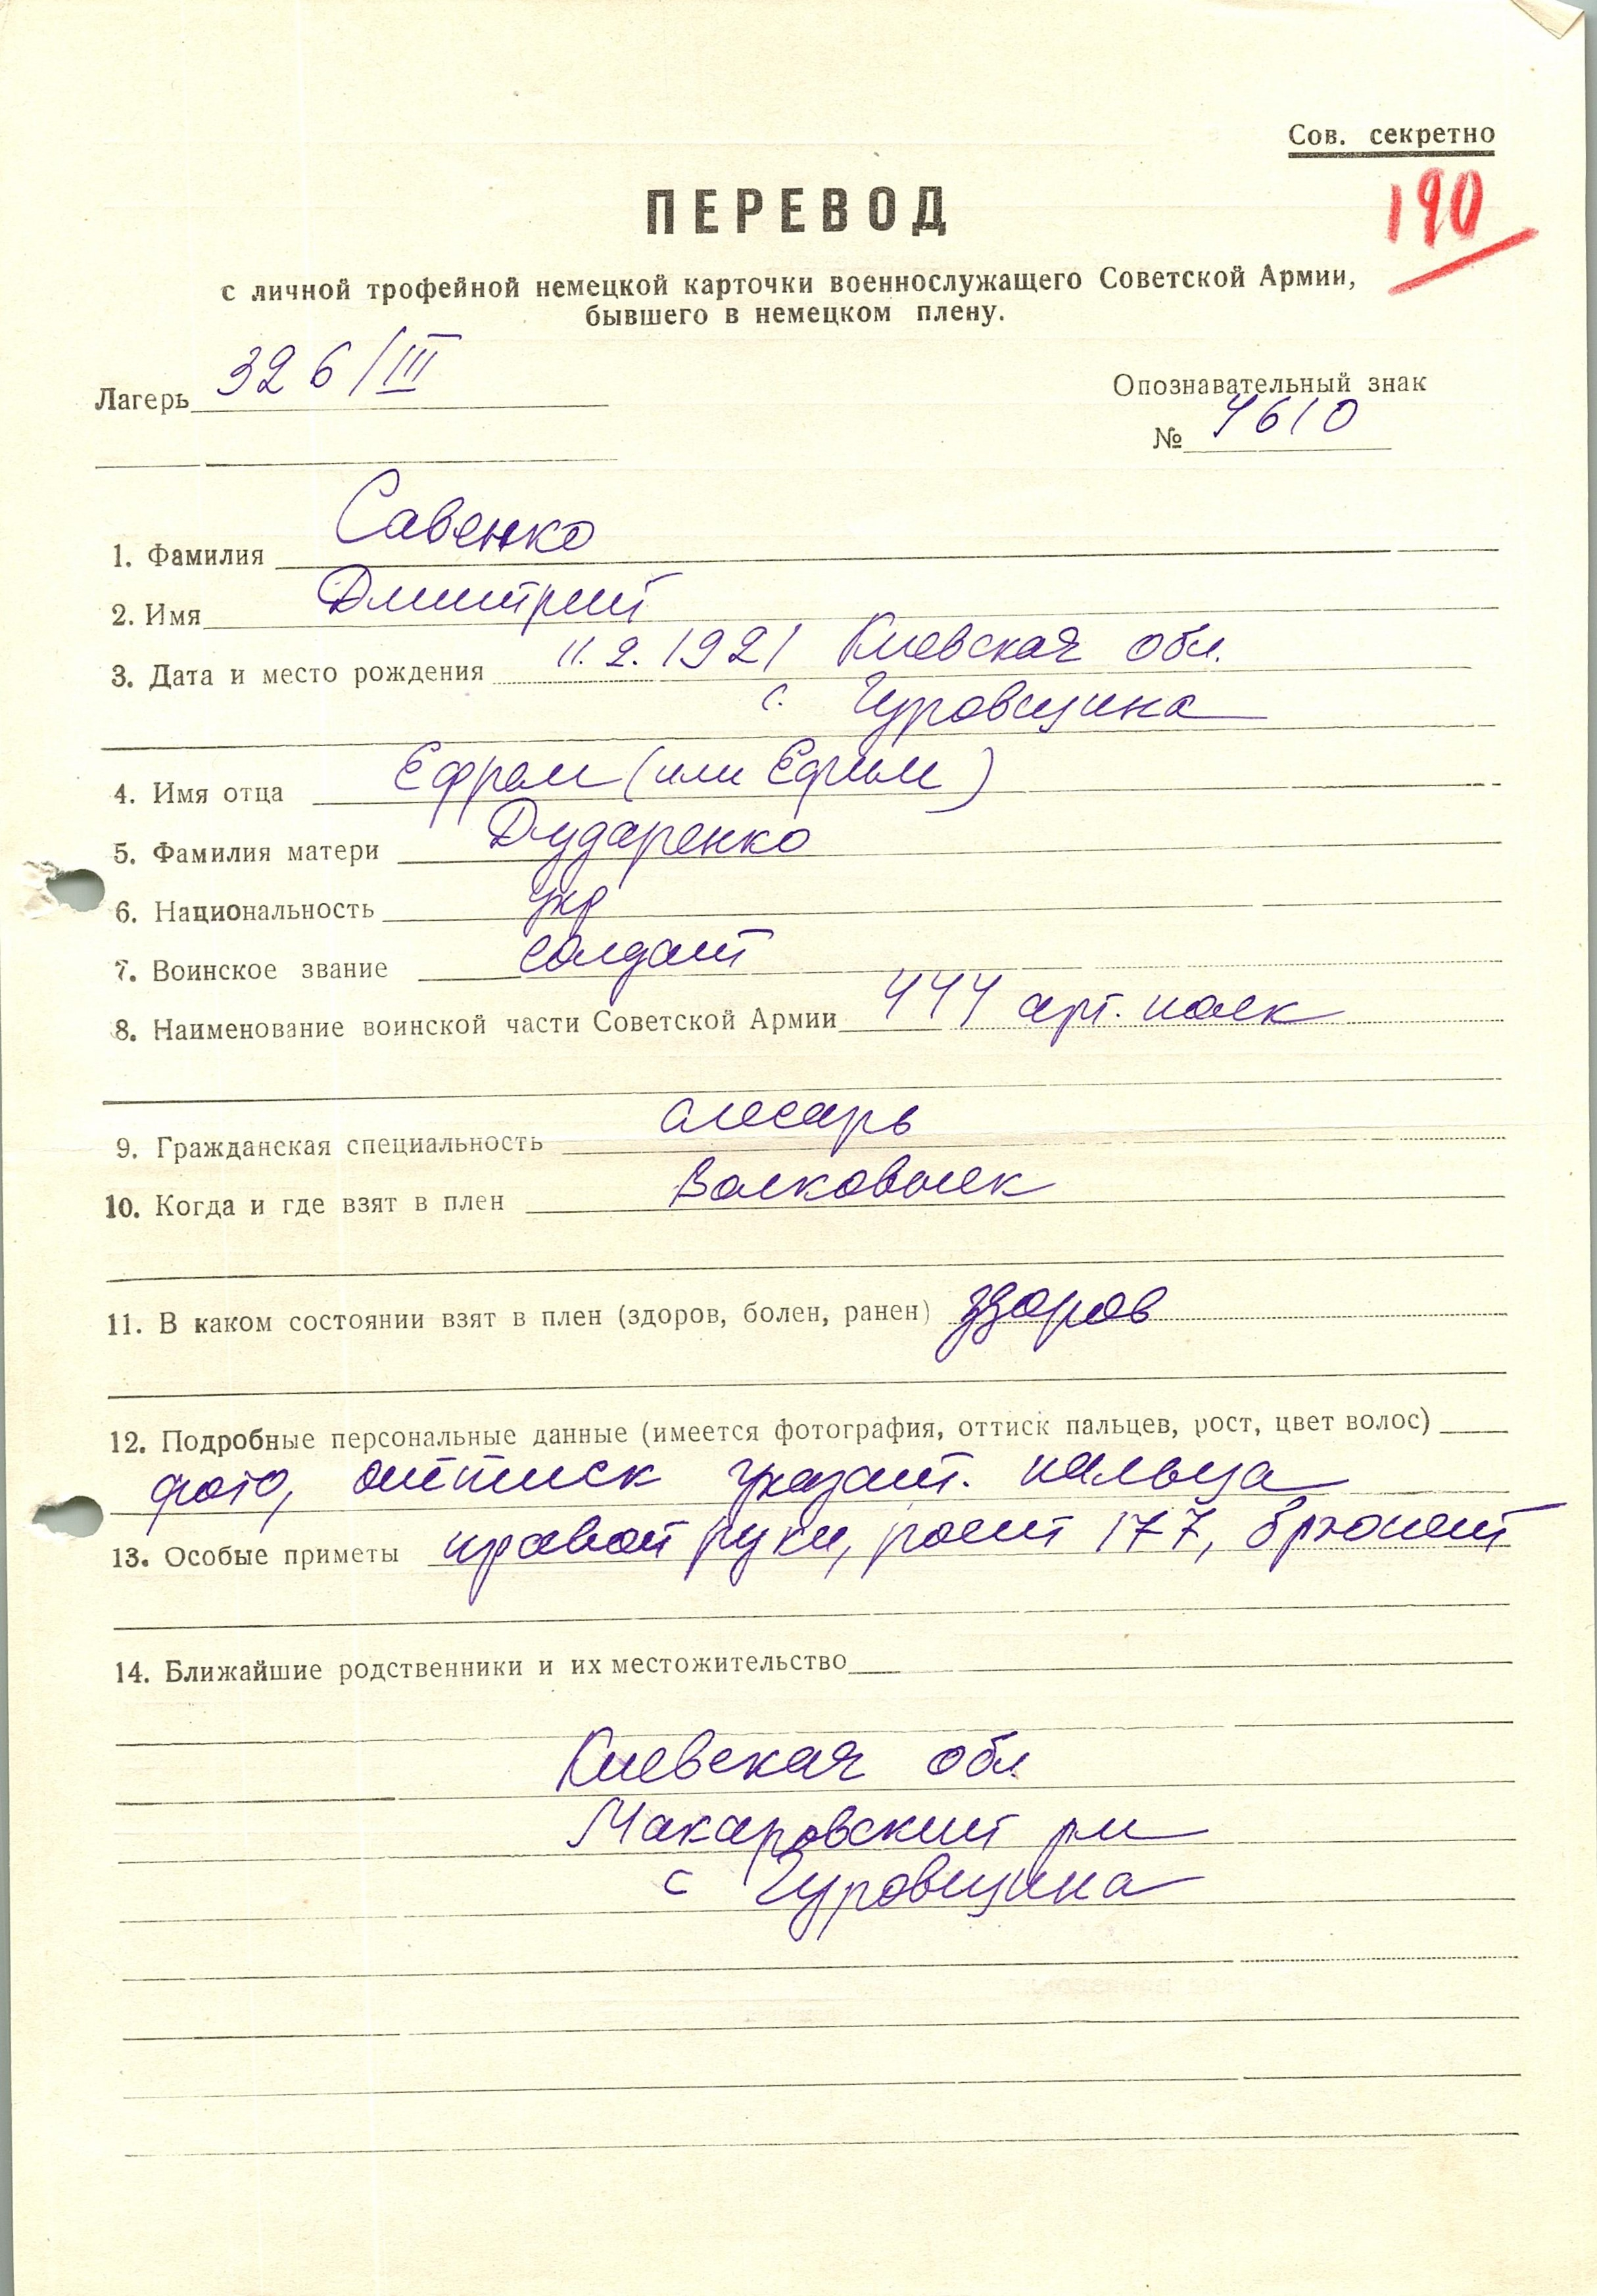 Сов. секретно
190
ПЕРЕВОД
с личной трофейной немецкой карточки военнослужащего Советской Армии,
бывшего в немецком плену.
Лагерь 326/III
Опознавательный знак
№ 4610
1. Фамилия Савенко
2. Имя Дмитрий
3. Дата и место рождения 11.2.1921 Киевская обл.
с. Гуровщина
4. Имя отца Ефрем (или Ефим)
5. Фамилия матери Дударенко
6. Национальность укр
7. Воинское звание солдат
8. Наименование воинской части Советской Армии 444 арт. полк
9. Гражданская специальность слесарь
10. Когда и где взят в плен Волковыск
11. В каком состоянии взят в плен (здоров, болен, ранен) здоров
12. Подробные персональные данные (имеется фотография, оттиск пальцев, рост, цвет волос)
фото, оттиск указат. пальца
13. Особые приметы правой руки, рост 177, брюнет
14. Ближайшие родственники и их местожительство
Киевская обл
Макаровский рн
с Гуровщина